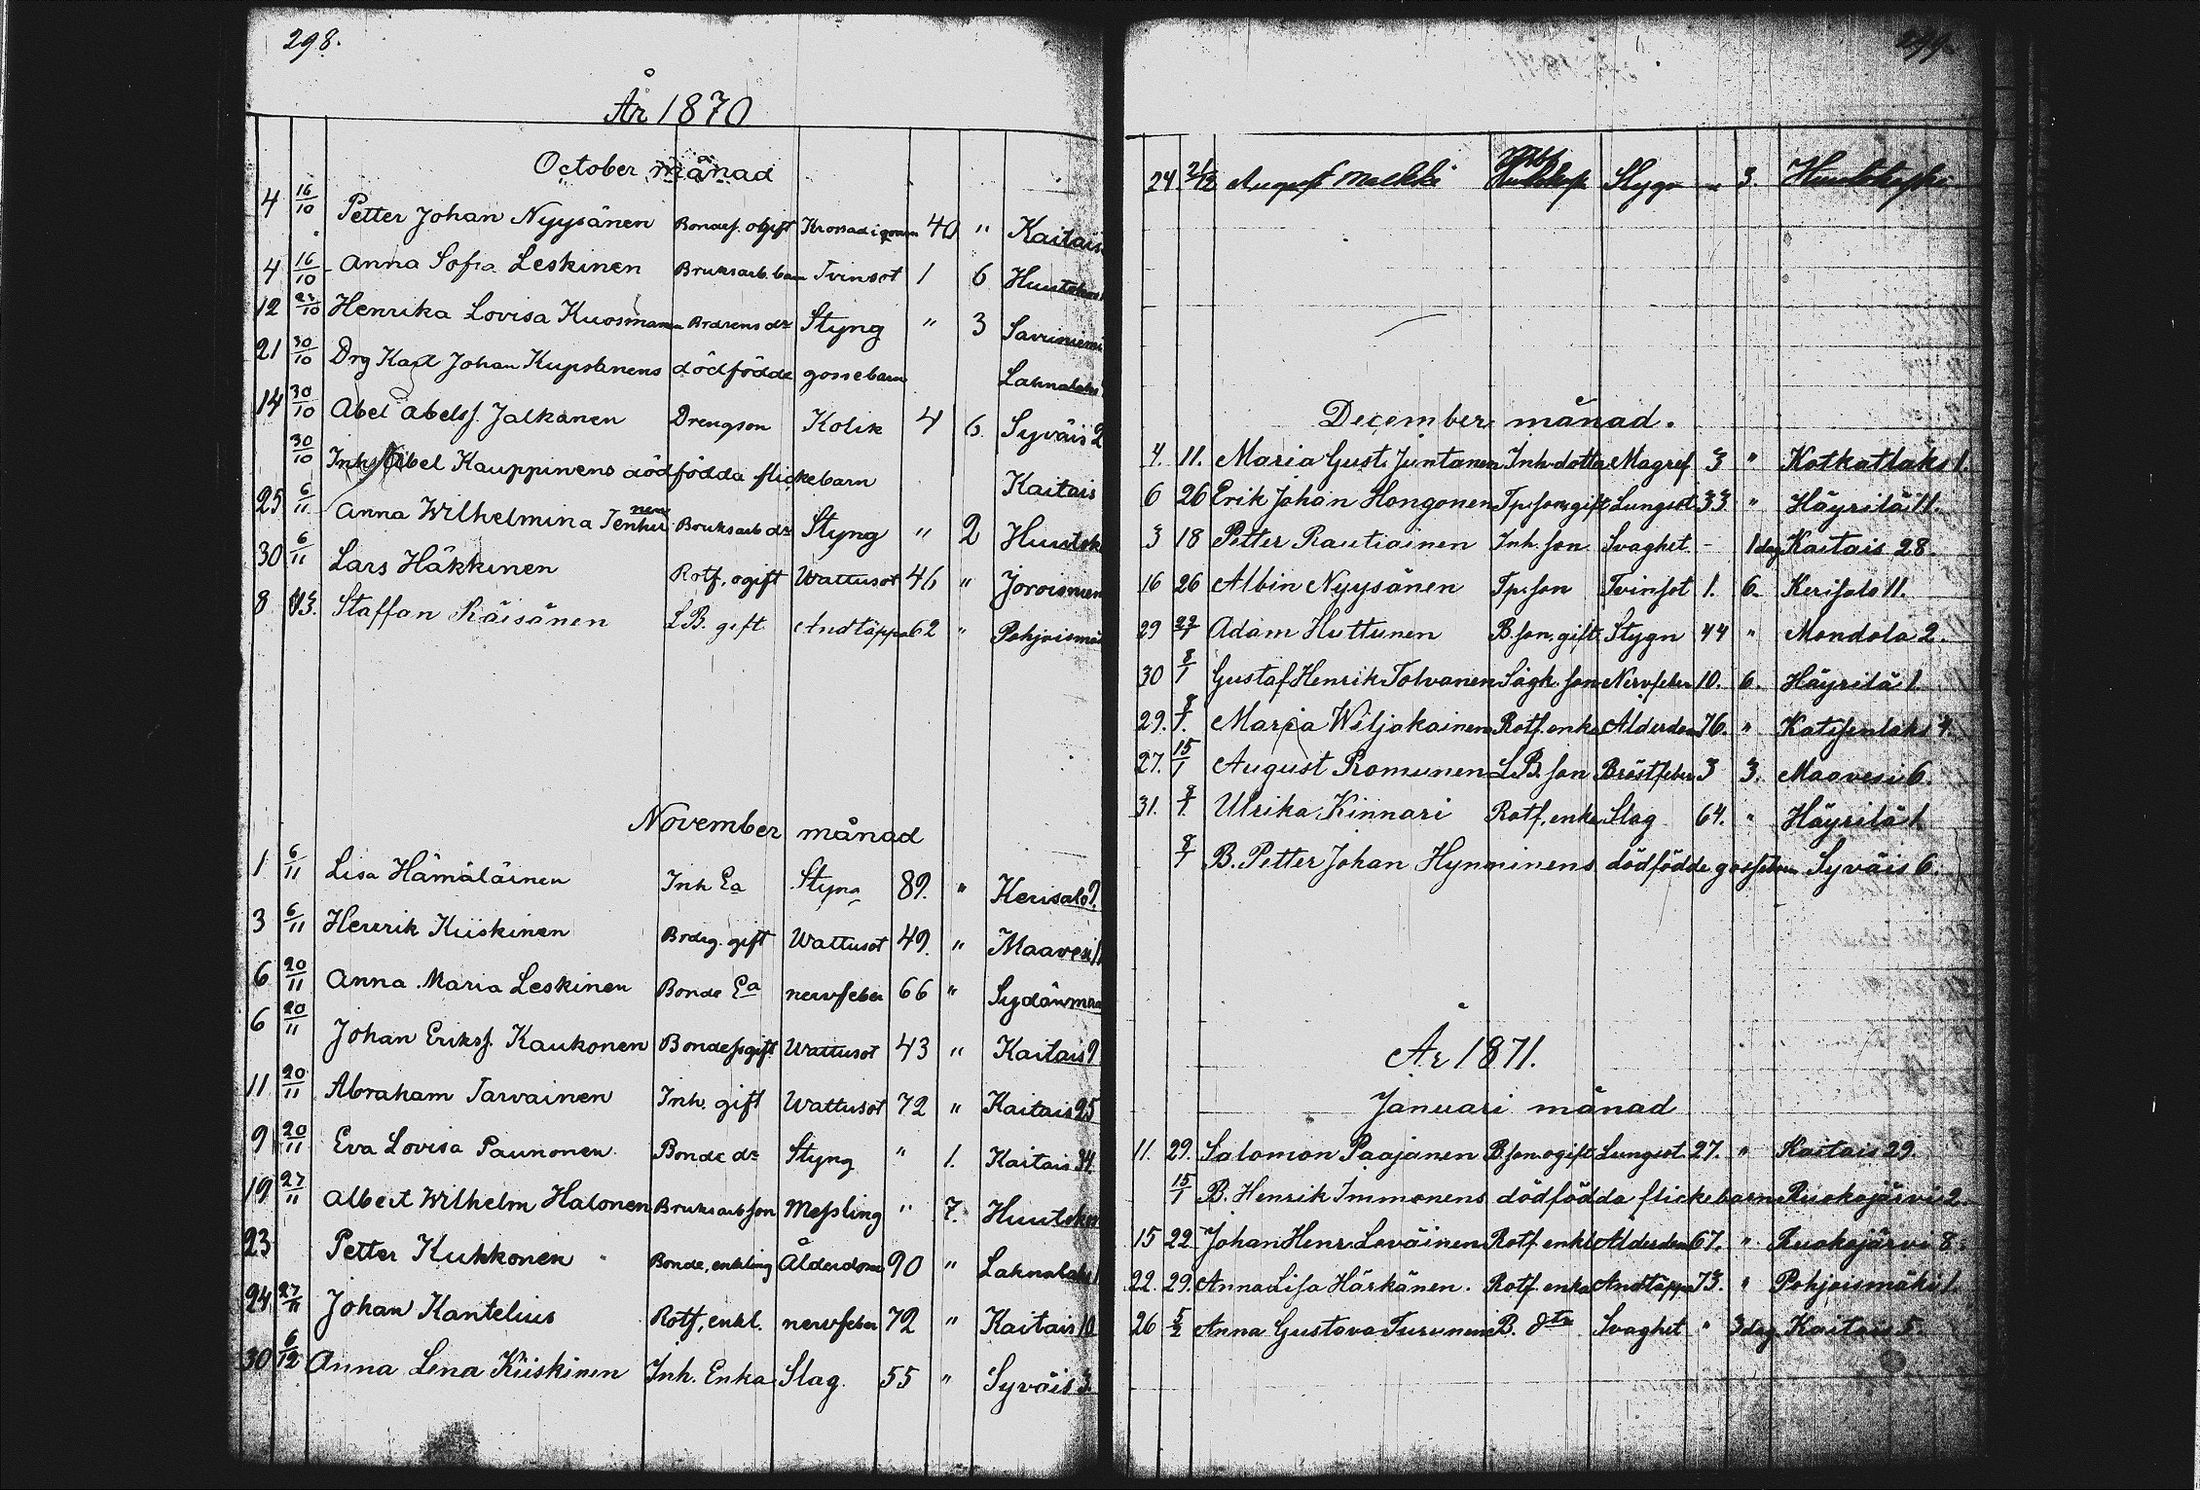 298.
År 1870
October månad
4 16/10 Petter Johan Nyysänen Bondes. ogift 40 " Kaitais
4 16/10 Anna Sofia Leskinen Bruksarb. barn Tvinsot 1 6 Huutokos
12 23/10 Henrika Lovisa Kuosmanen dr Styng " 3 Savuniemi
21 30/10 Drg Karl Johan dödfödde gossebarn Lahnalaks
14 30/10 Abel Abelsf. Jalkanen Drengson Kolik 4 6 Syväis 2
30/10 Inhs Abel Kauppinens dödfödda flickebarn Kaitais
25 6/11 Anna Wilhelmina Tenhunen Bruksarb dr Styng " 2 Huutok
30 6/11 Lars Häkkinen Rotf, ogift Wattusot 46 " Joroisniem
8 Staffan Räisänen L.B. gift Andtäppa 62 " Pohjoismä
November månad
1 6/11 Lisa Hämäläinen Inh Ea Styng 89. " Kerisalo 9.
3 6/11 Henrik Kiiskinen Brdrg. gift Wattusot 49. " Maavesi 11
6 20/11 Anna Maria Leskinen Bonde Ea nervfeber 66 " Sydänma
6 20/11 Johan Eriksf. Kaukonen Bondes gift Wattusot 43 " Kaitais 9
11 20/11 Abraham Tarvainen Inh. gift Wattusot 72 " Kaitais 25
9 20/11 Eva Lovisa Paunonen Bonde dr Styng " 1. Kaitais 34.
19 27/11 Albert Wilhelm Halonen Bruksarb son Messling " 7. Huutokos
23 Petter Kukkonen Bonde, enkling Ålderdom 90 " Lahnalaks 1
24 27/11 Johan Kantelius Rotf, enkl. nervfeber 72 " Kaitais 10
30 6/12 Anna Lena Kiiskinen Inh. Enka Slag. 55 " Syväis 3.
24 August Stygn " 3. Huutokoski
December månad.
4. 11. Maria Gust. Juntanen Inh dotter Magref 3 " Kotkatlaks 1.
6 26 Erik Johan Hongonen Tp. son, gift Lungsot 33 " Häyrilä 11.
3 18 Petter Rautiainen Inh. son Svaghet. - 1 dag Kaitais 28.
16 26 Albin Nyysänen Tp. son Tvinsot 1. 6. Kerisalo 11.
29 22/1 Adam Huttunen B. son, gift Stygn 44 " Mondola 2.
30 8/1 Gustaf Henrik Tolvanen Sägk. son Nervfeber 10. 6. Häyrilä 1.
29. 8/1. Maria Wiljakainen Rotf. enka Ålderdom 76. " Katisenlaks 4.
27. 15/1 August Romunen L.B. son Bröstfeber 3 3. Maavesi 6.
31. 8/1 Ulrika Kinnari Rotf. enka Slag 64. " Häyrilä 1.
8/1 B. Petter Johan Hynninens dödfödde gossebarn Syväis 6.
År 1871.
Januari månad
11. 29. Salomon Paajanen B. son. ogift Lungsot 27. " Kaitais 29.
15/1 B. Henrik Immonens dödfödda flickebarn Ruokojärvi 2
15 22. Johan Henr. Leväinen Rotf. enkl Ålderdom 67. " Ruokojärvi 8.
22. 29. Anna Lisa Härkänen. Rotf. enka Andtäppa 73. " Pohjoismäki 1.
26 5/2 Anna Gustava Turunen B. dtr Svaghet " 3 dag Kaitais 5.